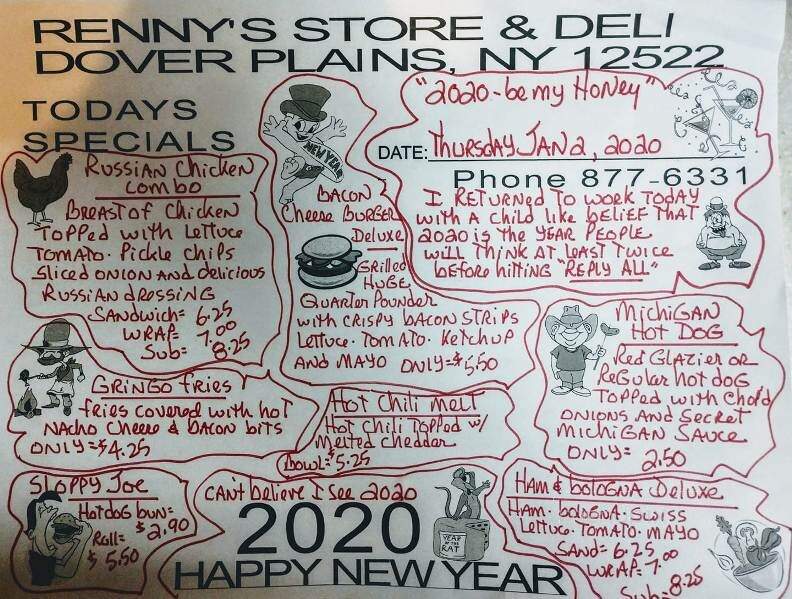 RENNY'S STORE & DELI
DOVER PLAINS, NY 12522
TODAYS
SPECIALS
"2020-be my HONEY"
DATE: THURSDAY JAN 2, 2020
Phone 877-6331
I RETURNED TO WORK TODAY
WITH A CHILD LIKE BELIEF THAT
2020 IS THE YEAR PEOPLE
WILL THINK AT LEAST TWICE
BEFORE HITTING "REPLY ALL"
RUSSIAN CHICKEN
COMBO
BREAST OF CHICKEN
TOPPED WITH LETTUCE
TOMATO. PICKLE CHIPS
SLICED ONION AND DELICIOUS
RUSSIAN DRESSING
SANDWICH= 6.25
WRAP= 7.00
SUB= 8.25
NEW YEAR
BACON
CHEESE BURGER
DELUXE
GRILLED
HUGE
QUARTER POUNDER
WITH CRISPY BACON STRIPS
LETTUCE. TOMATO. KETCHUP
AND MAYO ONLY=$5.50
MICHIGAN
HOT DOG
RED GLAZIER OR
REGULAR HOT DOG
TOPPED WITH CHOP'D
ONIONS AND SECRET
MICHIGAN SAUCE
ONLY= 2.50
GRINGO FRIES
FRIES COVERED WITH HOT
NACHO CHEESE & BACON BITS
ONLY=$4.25
HOT CHILI MELT
HOT CHILI TOPPED W/
MELTED CHEDDAR
BOWL= 5.25
SLOPPY JOE
HOTDOG BUN=
$2.90
ROLL=
$5.50
CAN'T BELIEVE I SEE 2020
2020
YEAR
OF THE
RAT
HAPPY NEW YEAR
HAM & BOLOGNA DELUXE
HAM. BOLOGNA. SWISS
LETTUCE. TOMATO. MAYO
SAND= 6.25
WRAP= 7.00
SUB= 8.25